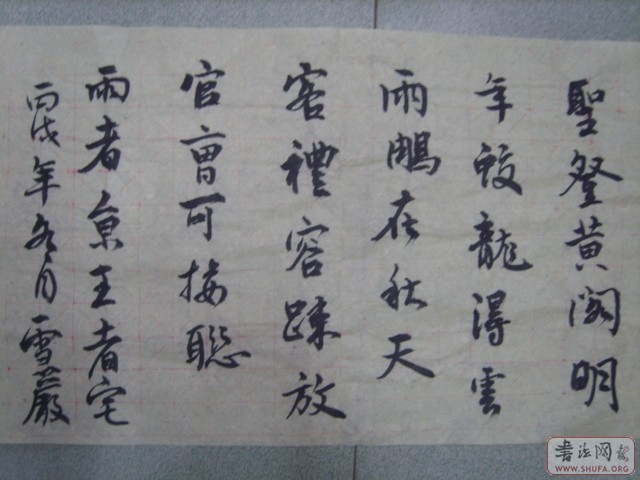 聖登黄閣明
年蛟龍得雲
雨鵰在秋天
客禮容疎放
官曹可接聯
雨者京王者宅
丙戌年冬月雪巖
書法网
WWW.SHUFA.ORG